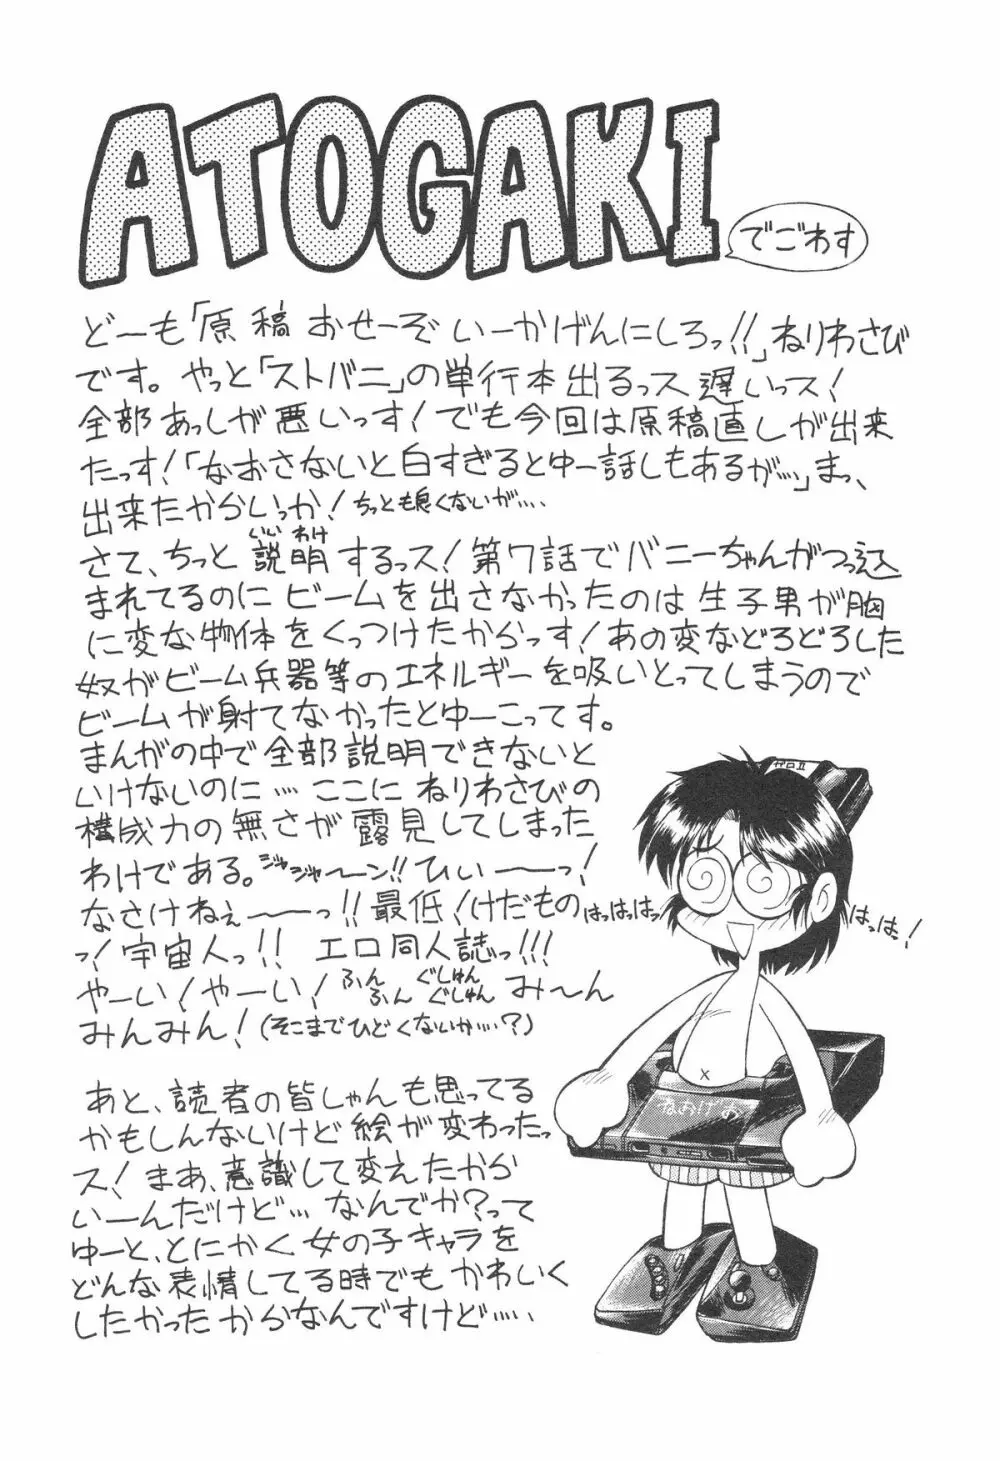 ATOGAKI
でごわす
どーも「原稿おせーぞいーかげんにしろっ!!」ねりわさび
です。やっと「ストバニ」の単行本出るっス遅いっス!
全部あっしが悪いっす!でも今回は原稿直しが出来
たっす!「なおさないと白すぎるとゆー話しもあるが…」まっ、
出来たからいっか!ちっとも良くないが….
さて、ちっと説明するっス!第7話でバニーちゃんがつっ込
いいわけ
まれてるのにビームを出さなかったのは生子男が胸
に変な物体をくっつけたからっす!あの変などろどろした
奴がビーム兵器等のエネルギーを吸いとってしまうので
ビームが射てなかったとゆーこってす。
まんがの中で全部説明できないと
いけないのに…ここにねりわさびの
構成力の無さが露見してしまった
わけである。ジャジャ〜ーン!!ひぃーーっ!
なさけねぇーーっ!!最低!けだもの
っ!宇宙人っ!!エロ同人誌っ!!!
やーい!やーい!ふんふんぐしゅんぐしゅんみ〜ん
みんみん!(そこまでひどくないか….?)
はっはっはっ
はっはっ!
ゼロⅡ
ねおげお
あと、読者の皆しゃんも思ってる
かもしんないけど絵が変わったっ
ス!まあ、意識して変えたから
いーんだけど…なんでか?って
ゆーと、とにかく女の子キャラを
どんな表情してる時でもかわいく
したかったからなんですけど…..